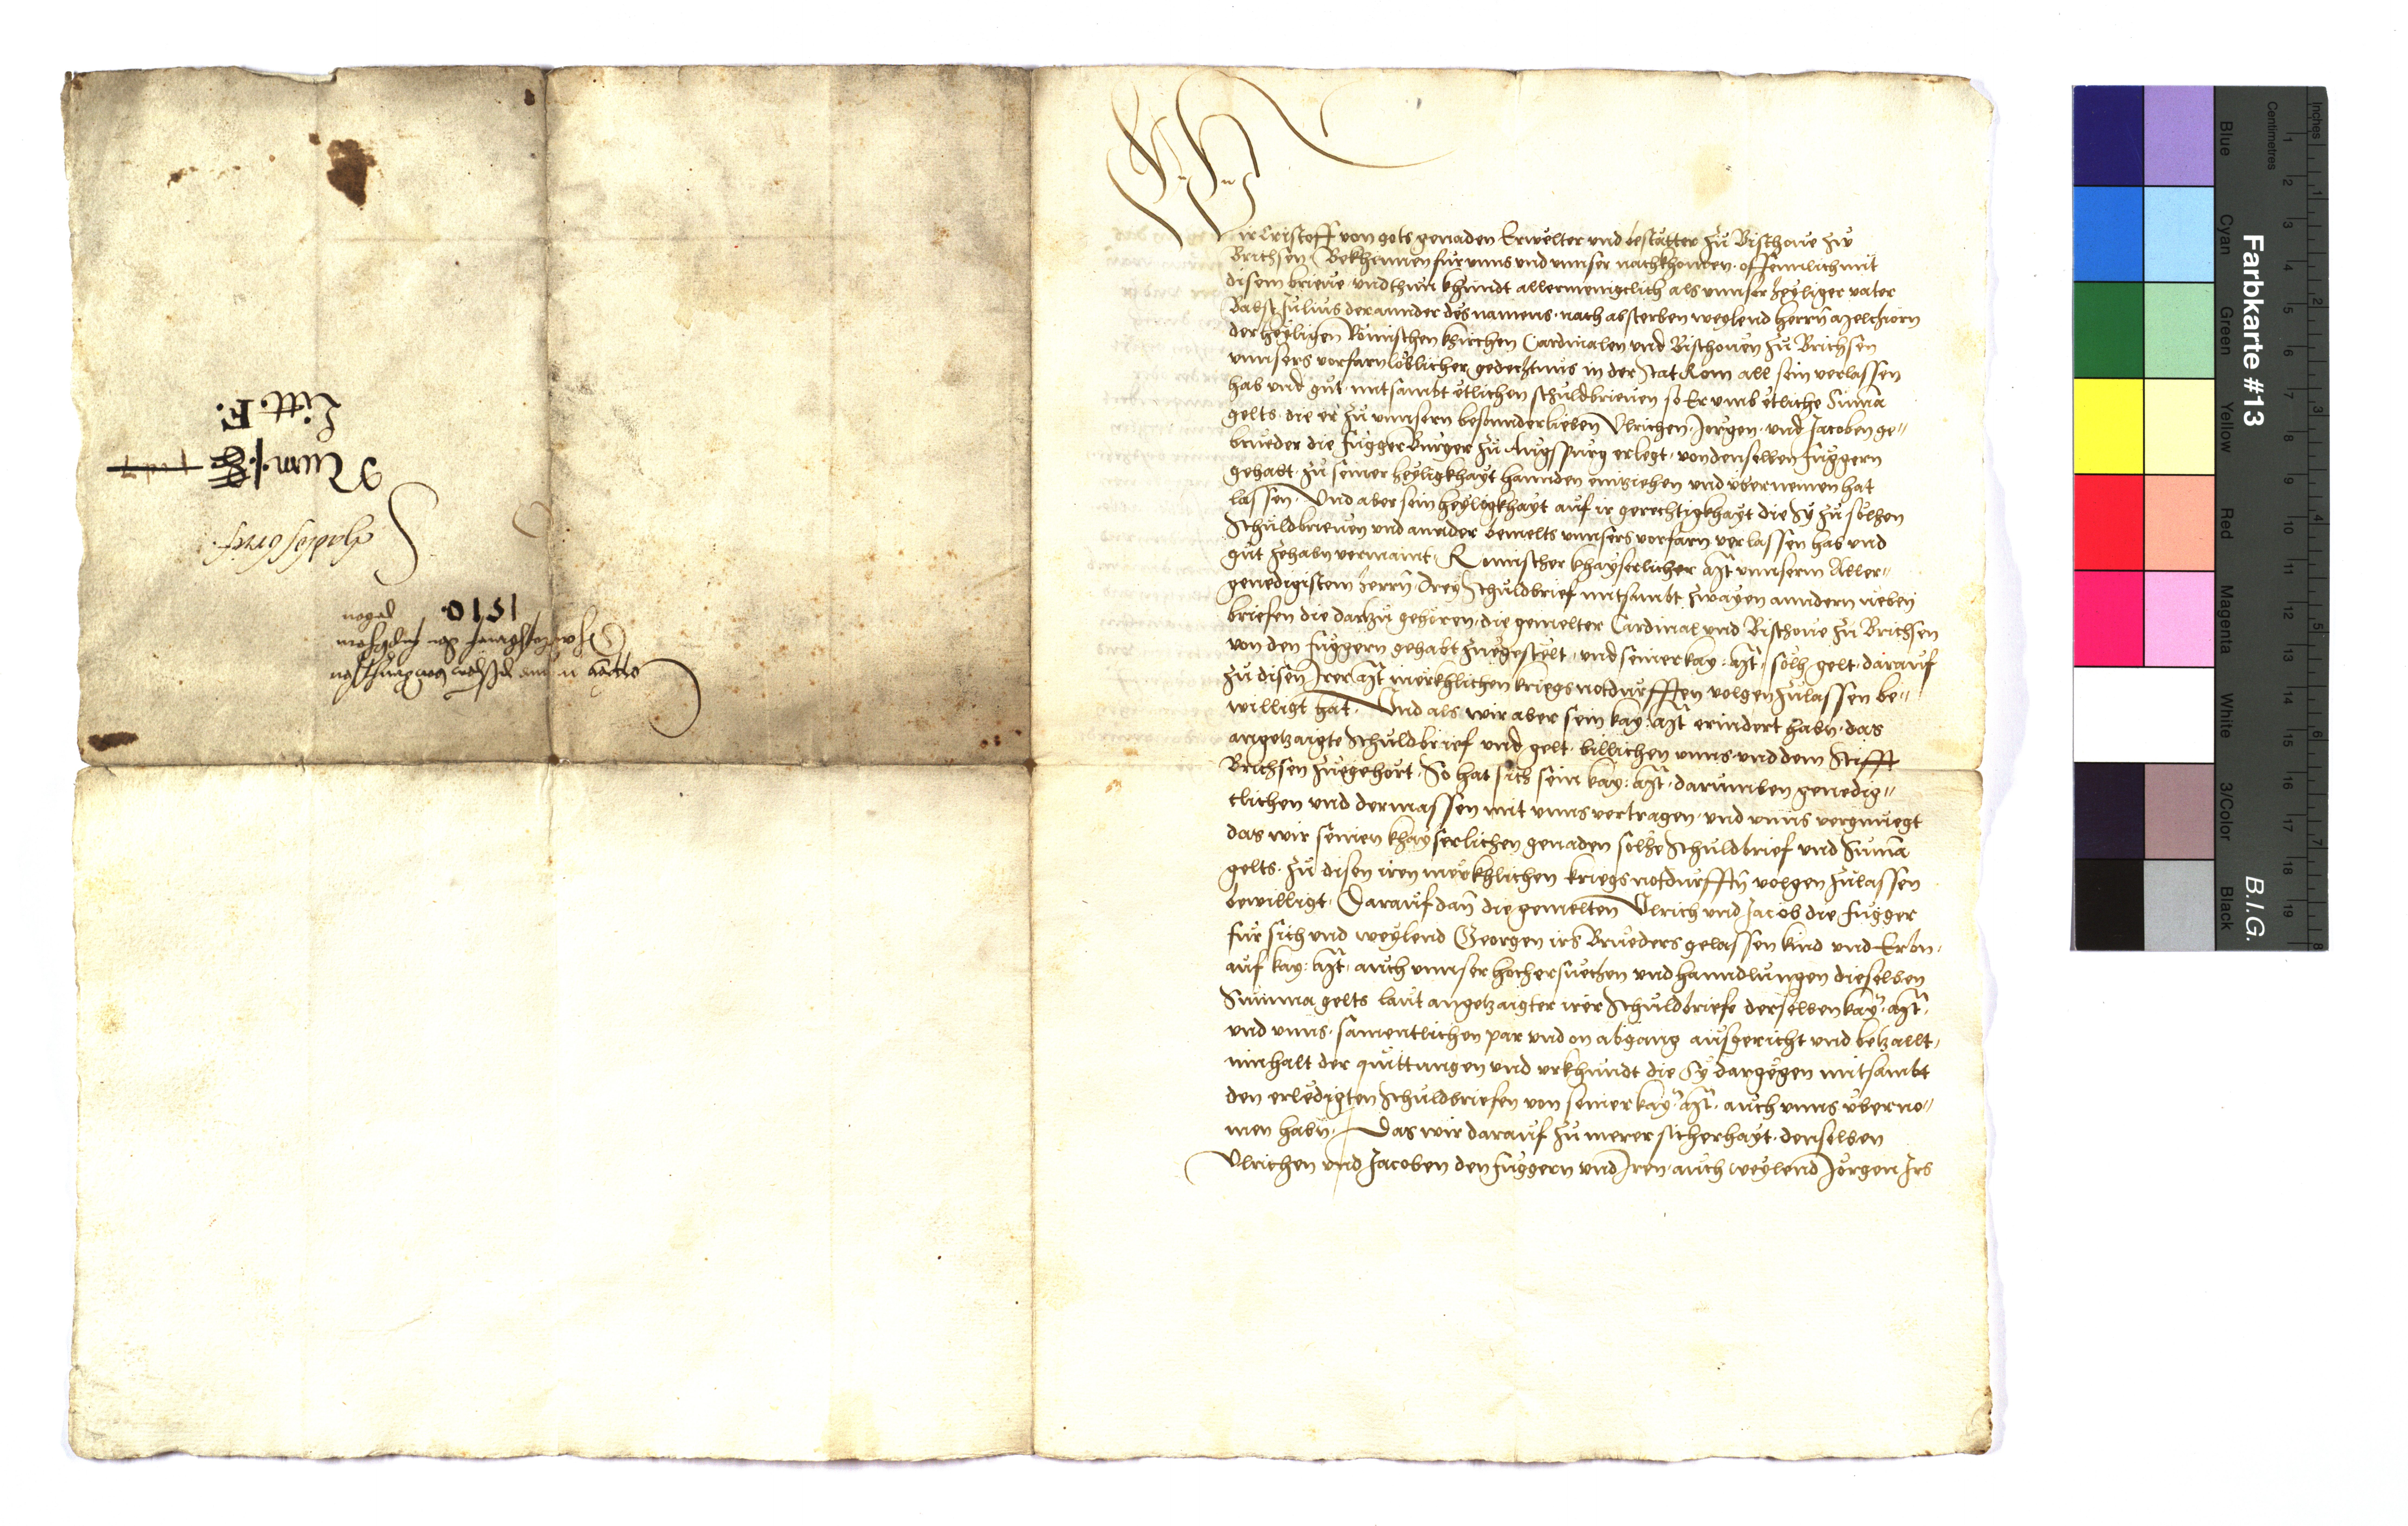 Wir Cristoff von gots genaden Erwelter und bestätter zu Bischove zu
Brichsen Bekhennen fur unns und unnser nachkhomen offennlich mit
disem brieve und thun khundt allermenigclich als unnser heyliger vater
Babst Julius der annder des namens nach absterben weylend herrn Melchiorn
der heyligen Römischen khirchen Cardinalen und Bischoven zu Brichsen
unnsers vorfarn löblicher gedechtnus in der stat Rom all sein verlassen
hab und gut mitsambt etlichen schuldbrieven so Er umb etliche Suma
gelts die er zu unnsern besonnder lieben Ulrichen Jorgen und Jacoben ge-
brueder die Fugger Burger zu Augspurg erlegt von denselben Fuggern
gehabt zu seiner heyligkhayt hannden einziehen und ubernemen hat
lassen. Und aber sein heyligkhayt auf ir gerechtigkhayt die Sy zu solhen
Schuldbrieven und annder bemelts unnsers vorfarn verlassen hab und
gut zehabn vermaint Romischer khayserlicher Mt unnserm Aller-
genedigistem herrn drey Schuldbrief mitsambt zwayen anndern neben
briefen die darzu gehören die gemelter Cardinal und Bischove zu Brichsen
von den Fuggern gehabt zuegestelt und seiner kay: Mt solh gelt darauf
zu disen Irer Mt merkhlichen kriegsnotdurfften volgen zulassen be-
willigt hat. Und als wir aber sein kay: Mt erindert habn das
angetzaigte Schuldbrief und gelt billichen unns und dem Stifft
Brichsen zuegehört So hat sich sein kay: Mt darumben genedig-
clichen und dermassen mit unns vertragen und unns vergnuegt
das wir seinen khayserlichen genaden solhe Schuldbrief und Suma
gelts zu disen iren merkhlichen kriegsnotdurfftn volgen zulassen
bewilligt Darauf dan die gemelten Ulrich und Jacob die Fugger
fur sich und weylend Georgen irs Brueders gelassen kind und Erbn
auf kay: Mt auch unnser hocher suechen und hanndlungen dieselben
Summa gelts laut angetzaigter irer Schuldbriefe derselben kay: Mt
und unns samentlichen par und on abgang ausgericht und betzallt
innhalt der quittungen und urkhundt die Sy dargegen mitsambt
den erledigten Schuldbriefen von seiner kay: Mt auch unns uberno-
men habn. Das wir darauf zu merer sicherhayt denselben
Ulrichen und Jacoben den Fuggern und Iren auch weylend Jörgen Irs
1510
Num:
Litt. F.